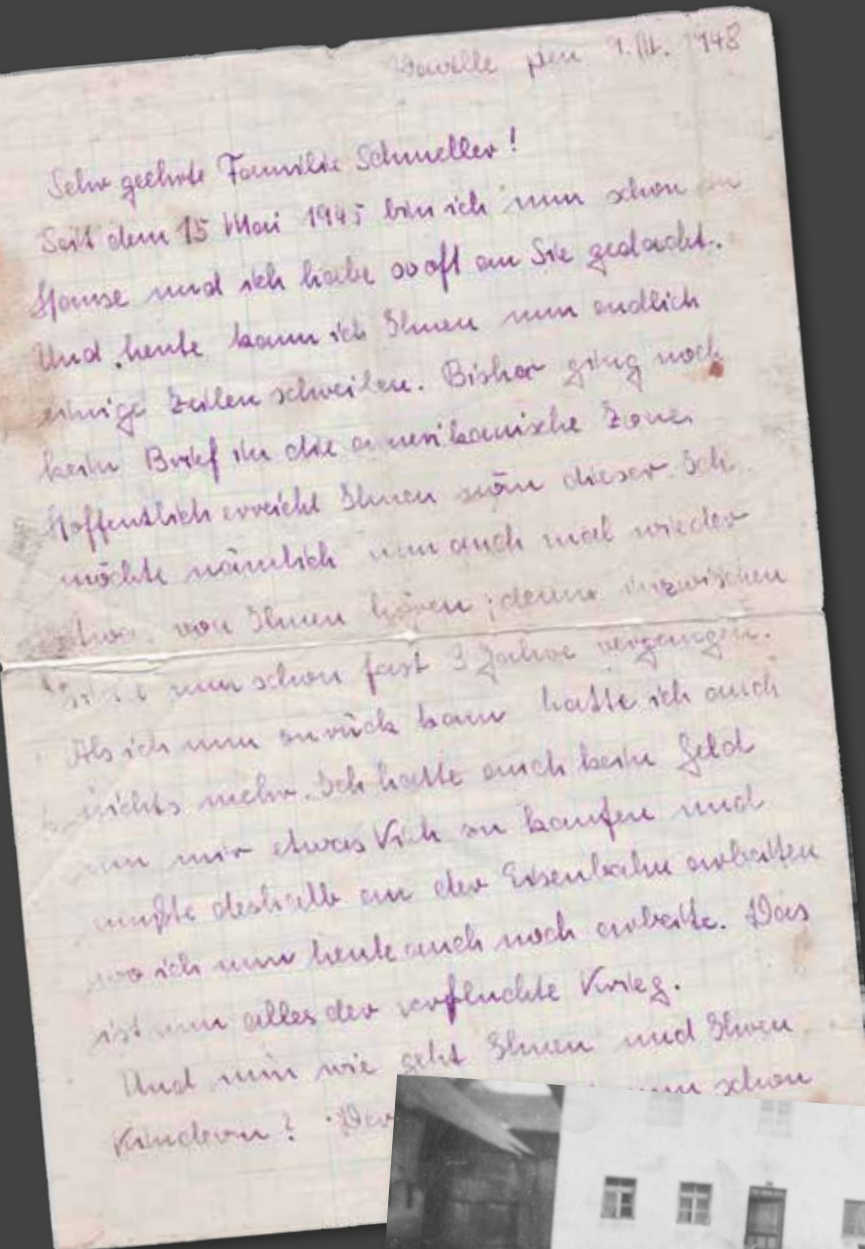 den 9. III. 1948
Sehr geehrte Familie Schmeller!
Seit dem 15 Mai 1945 bin ich nun schon zu
Hause und ich habe so oft an Sie gedacht.
Und heute kann ich Ihnen nun endlich
einige Zeilen schreiben. Bisher ging noch
kein Brief in die amerikanische Zone.
Hoffentlich erreicht Ihnen nun dieser. Ich
möchte nämlich nun auch mal wieder
von Ihnen hören; denn inzwischen
sind nun schon fast 3 Jahre vergangen.
Als ich nun zurück kam hatte ich auch
nichts mehr. Ich hatte auch kein Geld
um mir etwas Vieh zu kaufen und
mußte deshalb an der Eisenbahn arbeiten
wo ich nun heute auch noch arbeite. Das
ist nun alles der verfluchte Krieg.
Und nun wie geht Ihnen und Ihren
Kindern? nun schon